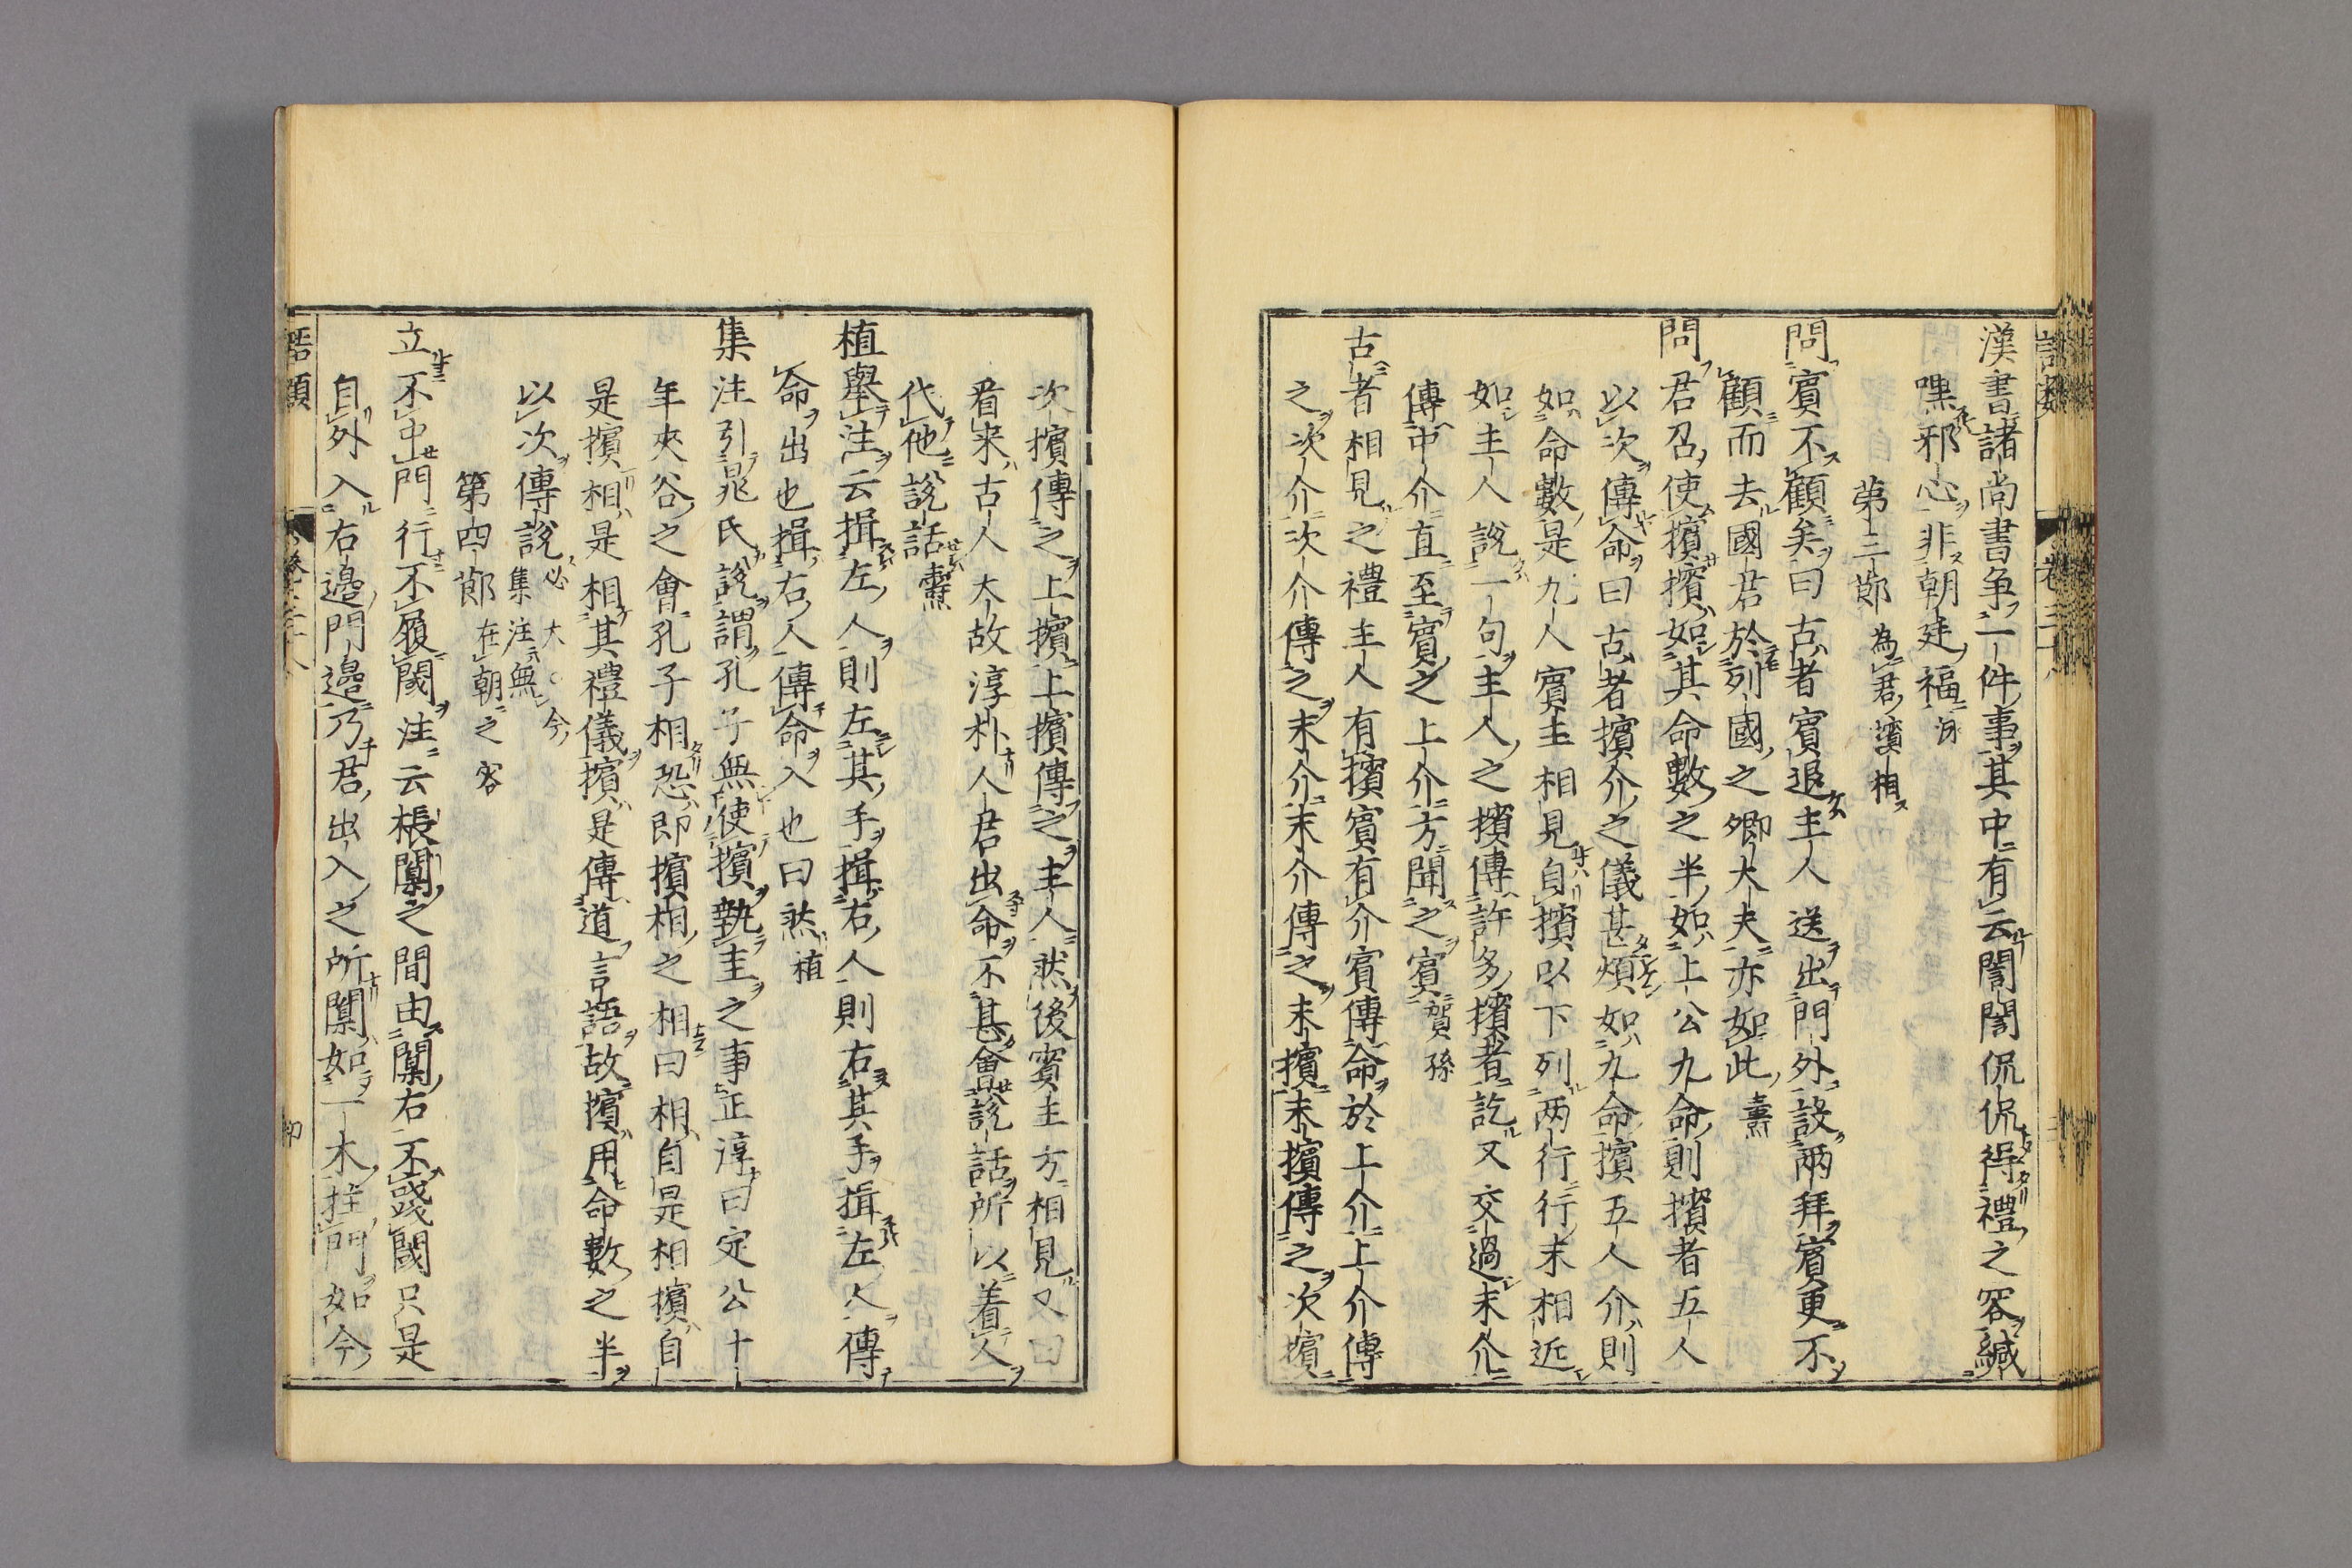 漢書諸尚書争一件事其中有云誾誾侃侃得禮之容緘
嘿邪心非朝廷福泳
第三節為君擯相
問賓不顧矣曰古者賓退主人送出門外設兩拜賓更不
顧而去國君於列國之卿大夫亦如此燾
問君召使擯擯如其命數之半如上公九命則擯者五人
以次傳命曰古者擯介之儀甚煩如九命擯五人介則
如命數是九人賓主相見自擯以下列两行行末相近
如主人說一句主人之擯傳許多擯者訖又交過末介
傳中介直至賓之上介方聞之賓賀孫
古者相見之禮主人有擯賓有介賓傳命於上介上介傳
之次介次介傳之末介末介傳之末擯末擯傳之次擯
次擯傳之上擯上擯傳之主人然後賓主方相見又曰
看来古人大故淳朴人君出命不甚會說話所以着人
代他說話燾
植舉注云揖左人則左其手揖右人則右其手揖左人傳
命出也揖右人傳命入也曰然植
集注引晁氏說謂孔子無使擯執圭之事正淳曰定公十
年夾谷之會孔子相恐即擯相之相曰相自是相擯自
是擯相是相其禮儀擯是傳道言語故擯用命數之半
以次傳說必大○今集注無
第四節在朝之容
立不中門行不履閾注云棖闑之間由闑右不踐閾只是
自外入右邊門邊乃君出入之所闑如一木拄門如今
語類